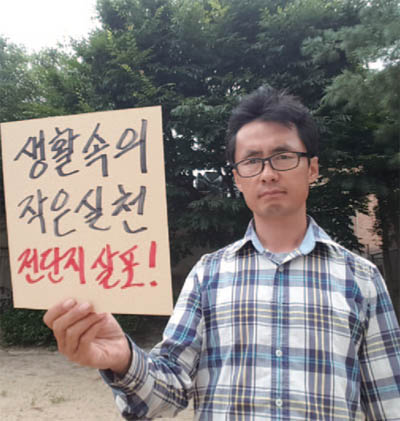 생활속의
작은실천
전단지 살포!